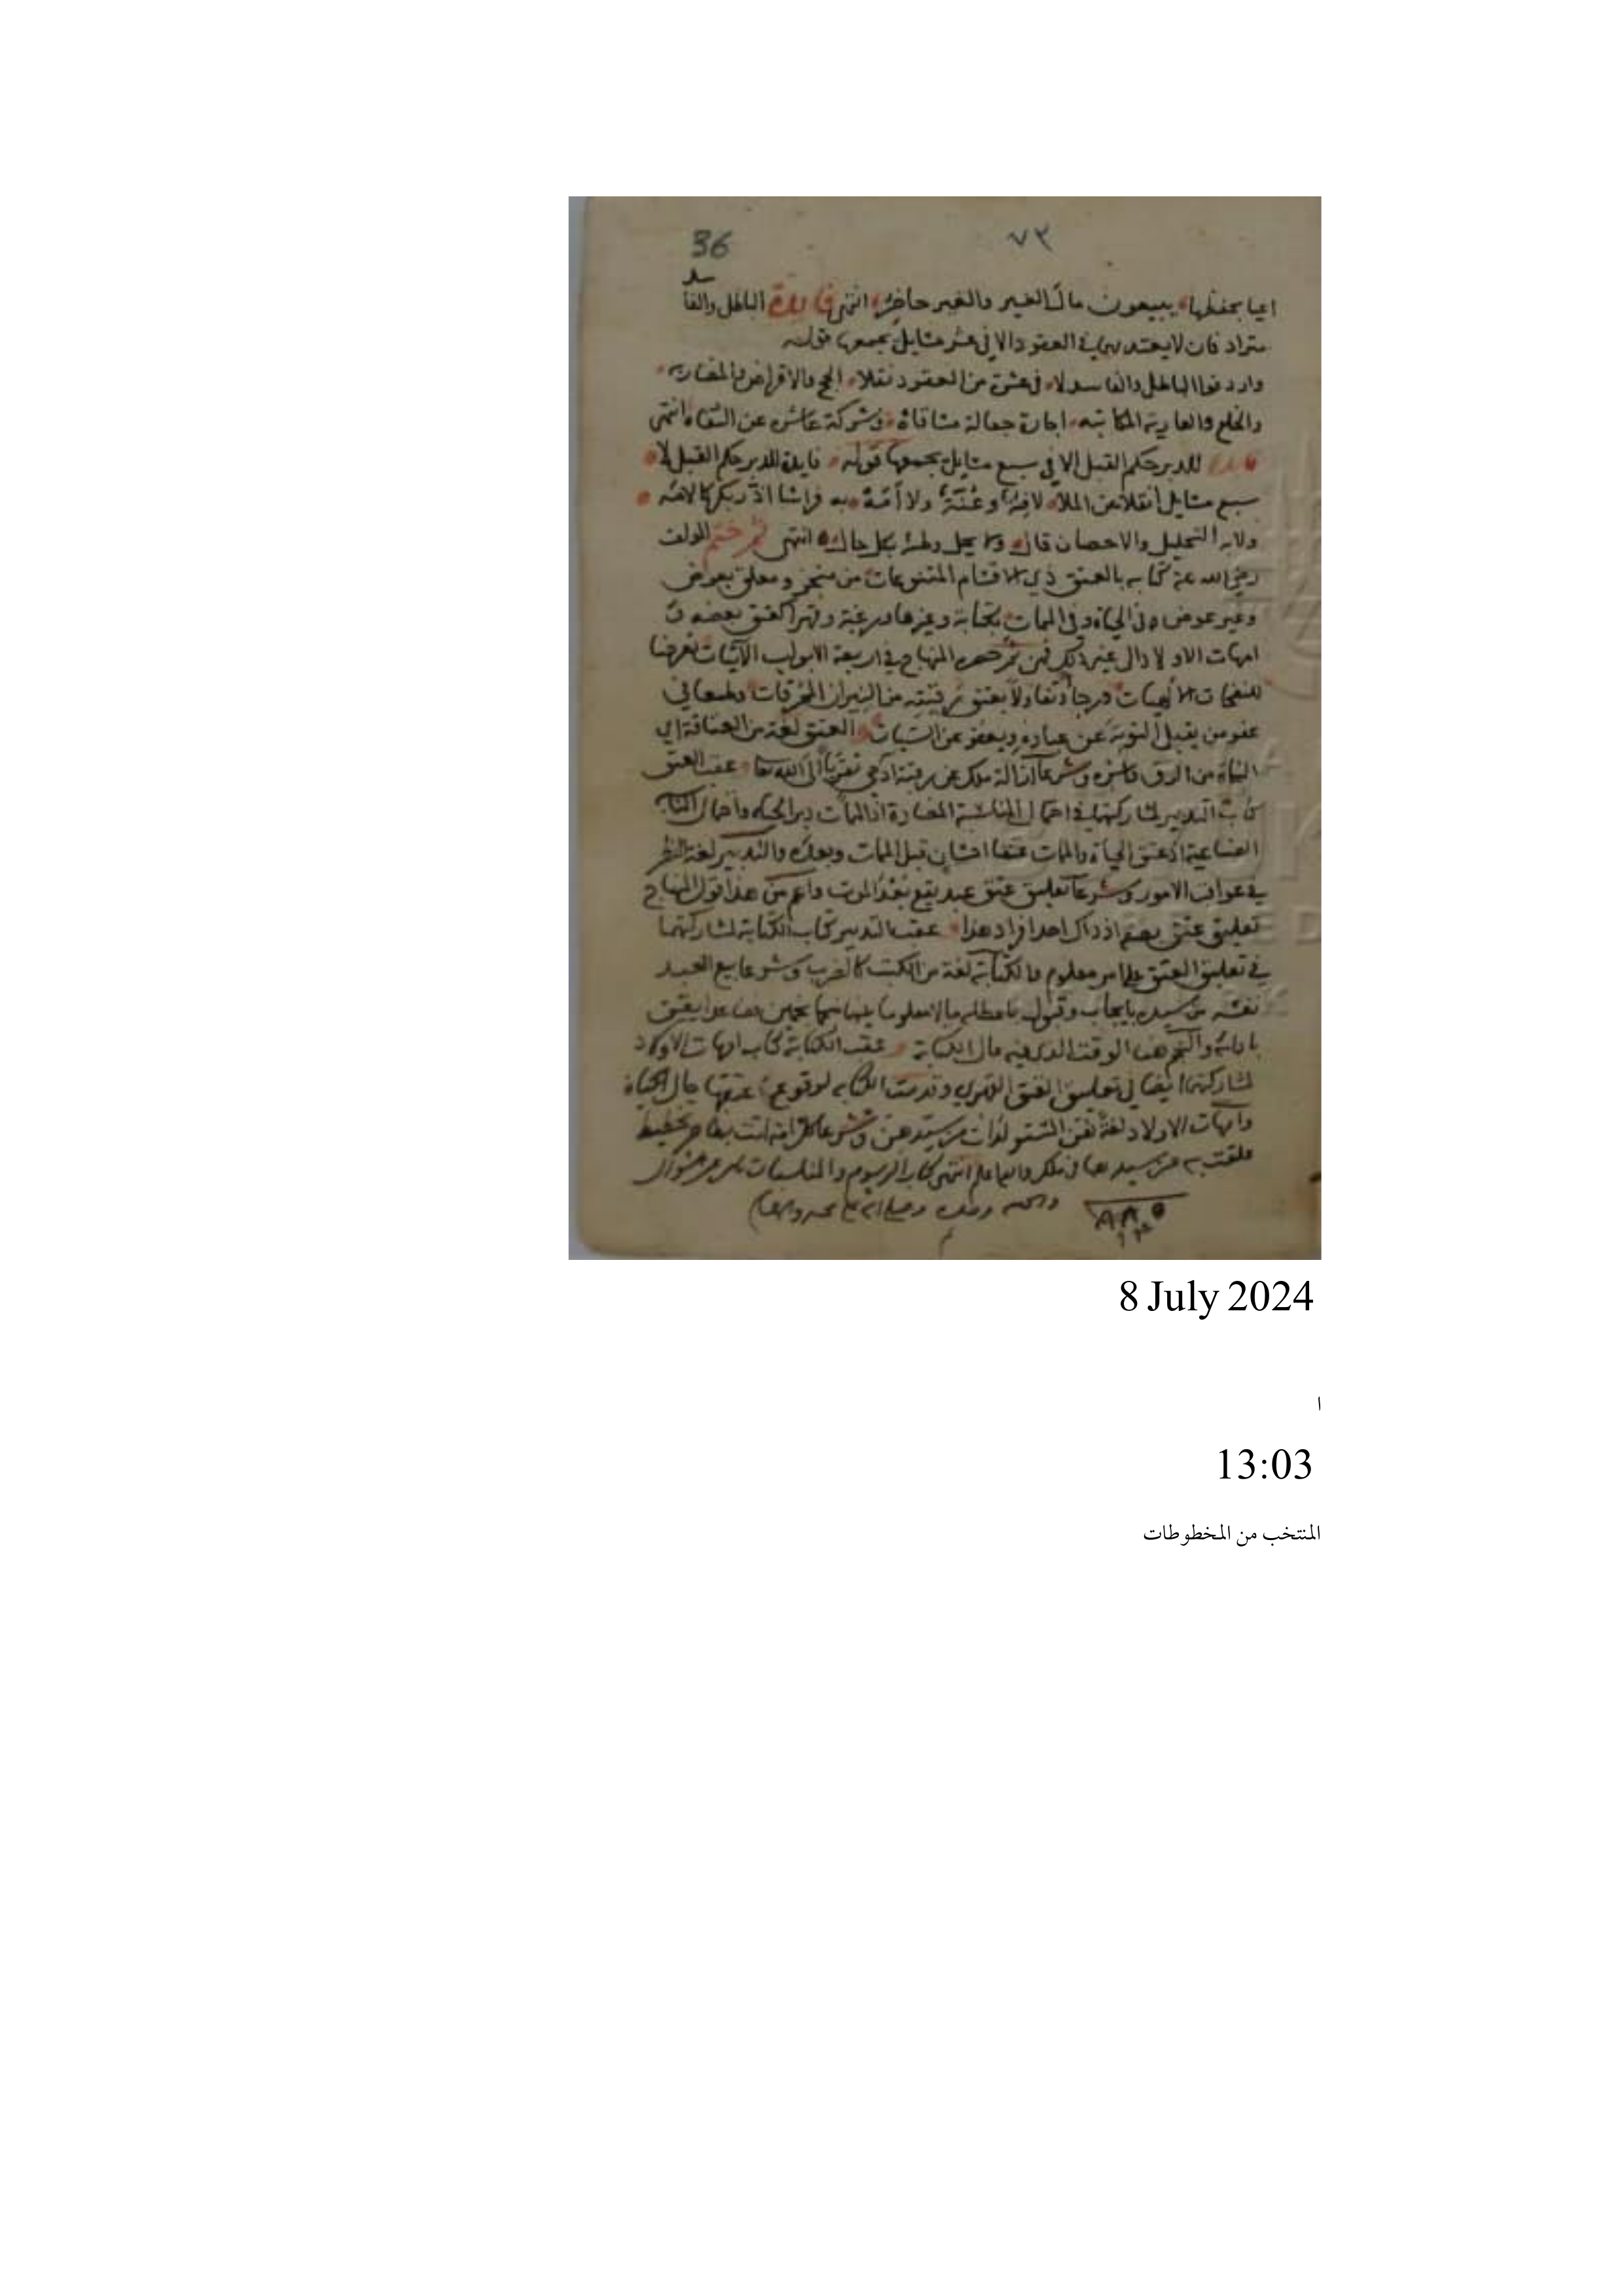 36
٧٣
يبيعون مال الغير والغير حاضر انتهى فايدة الباطل والفا
سد
مترادفان لا يعتد بهما في العقود الا في عشر مسايل يجمعها قوله
وارد فوا الباطل والفاسد لا في عشرة من العقود نقلا الحج والاقراض والمضاربه
والخلع والعارية المكاتبه اجارة جعالة مساقاة وشركة عاشره عن الثقاه انتهى
للدبر حكم القبل الا في سبع مسايل يجمعها قوله فايدة للدبر حكم القبل لا
سبع مسايل انقلا عن الملا وعنة ولا أمة به فراشا
ولا به التحليل والاحصان قال ولا يحل وطئه بكل حال انتهى ثم ختم المولف
رضي الله عنه كتابه بالعتق ذي الاقسام المتنوعات من منجز ومعلق بعوض
وغير عوض وفي الحياة وفي الممات بكتابة وغيرها ورغبة وقهرا كعتق بعضه
امهات الاولاد الى غير ذلك فمن ثم حصره المنهاج في اربعة الابواب الآتيات تعرضا
للنفحات الالهيات ورجا وتفاولا بعتق رقبته من النيران المحرقات وطمعا في
عفو من يقبل التوبة عن عباده ويعفو عن السيات العتق لغة من العتاقة اي
من الرق وشرعا ازالة ملك عن رقبة ادمي تقربا الى الله تعا عقب العتق
كتاب التدبير لمشاركتهما في المناسبة اذ الممات دبر الحياه
اذ عتق الحياة والممات قبل الممات وبعده والتدبير لغة النظر
في عواقب الامور وشرعا تعليق عتق عبد يقع بعد الموت واعم من هذا قول المنهاج
تعليق عتق بصفة اذ ذاك احد افراد هذا عقب التدبير كتاب الكتابة لمشاركتهما
في تعليق العتق على امر معلوم والكتابة لغة من الكتب كالضرب وشرعا بيع العبد
نفسه من سيده بايجاب وقبول
بادائه والنجم هنا الوقت الذي فيه مال الكتابة عقب الكتابة كتاب امهات الاولاد
لمشاركتهما ايضا في تعليق العتق القهري وقدمت الكتابه لوقوع عتقها حال الحياة
وامهات الاولاد لغة المستولدات من سيدهن وشرعا كل امة
علقت به من سيدها في ملكه والله اعلم انتهى كتاب الرسوم والمناسبات
٨٨٥
8 July 2024
ا
13:03
المنتخب من المخطوطات